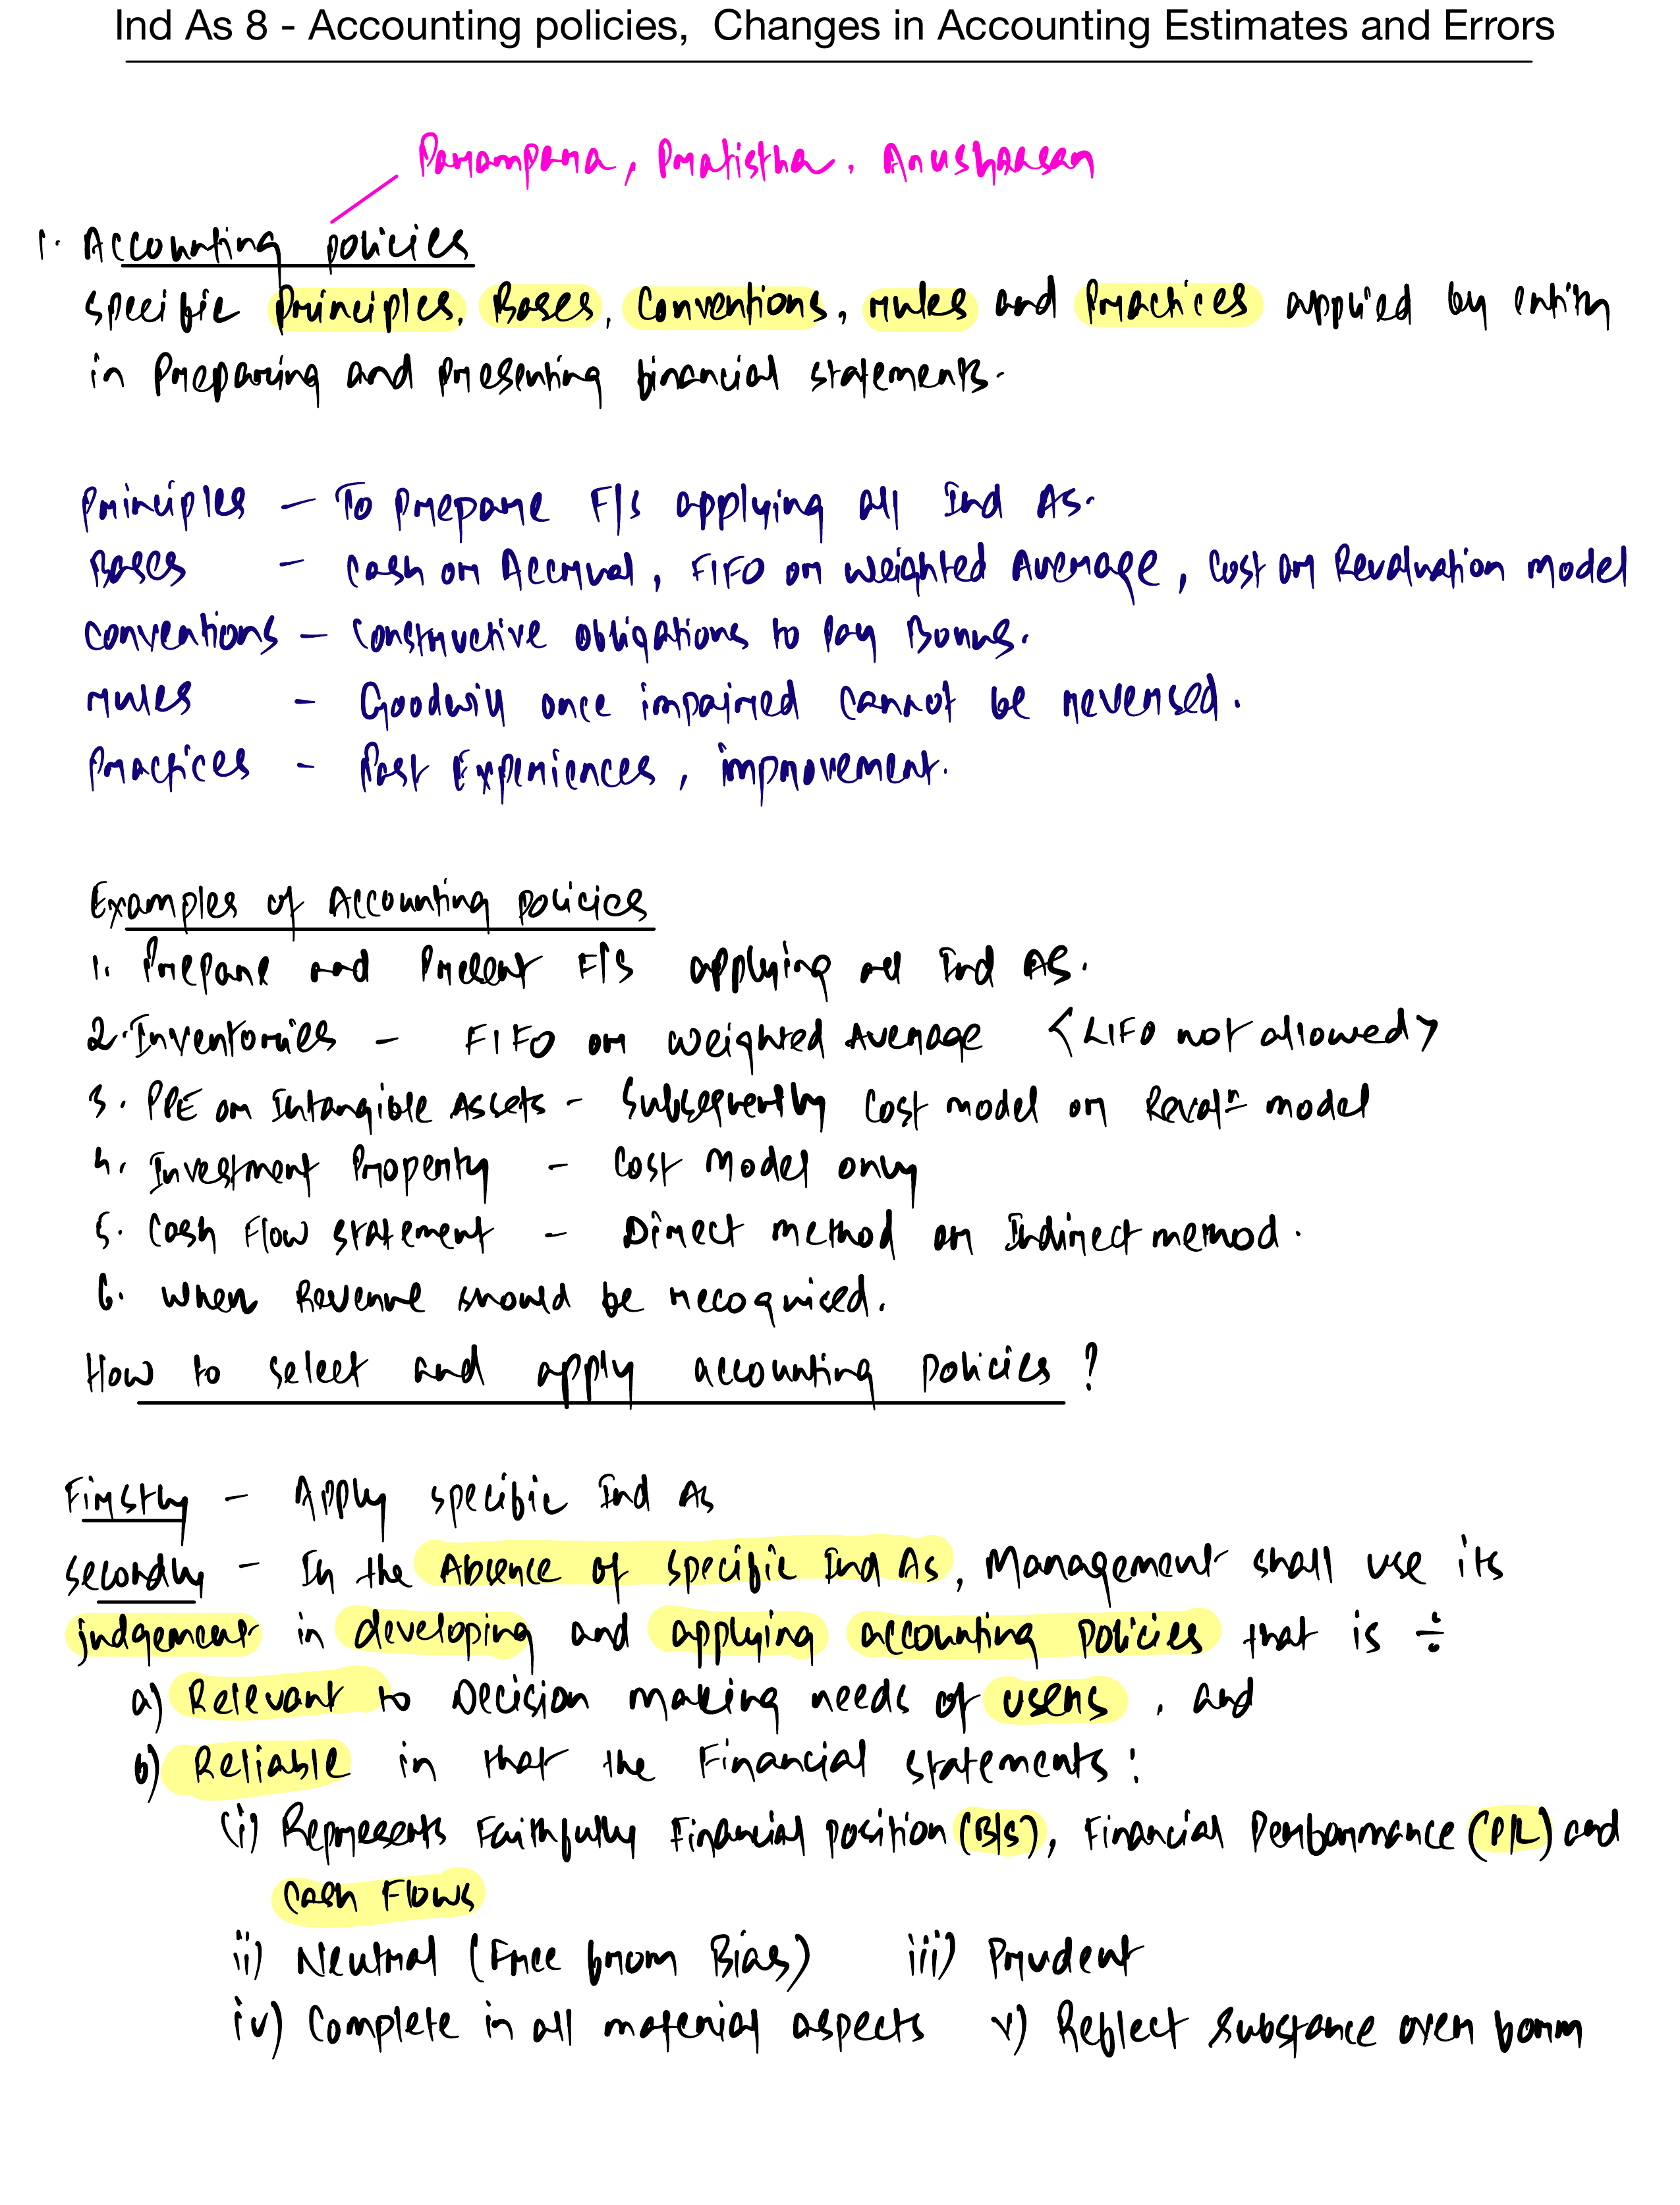 Ind As 8 - Accounting policies, Changes in Accounting Estimates and Errors
Parampara, Pratistha, Anushaasan
1. Accounting policies
specific Principles, Bases, Conventions, rules and Practices applied by entity
in Preparing and presenting financial statements.
Principles – To prepare F/S applying all Ind AS.
Bases – Cash or Accrual, FIFO or weighted Average, Cost or Revaluation model
Conventions – Constructive obligations to Pay Bonus.
rules – Goodwill once impaired cannot be reversed.
Practices – Past Experiences, improvement.
Examples of Accounting policies
1. Prepare and Present F/S applying all Ind AS.
2. Inventories – FIFO or weighted Average <LIFO not allowed>
3. PPE or Intangible Assets – Subsequently Cost model or Revalⁿ model
4. Investment Property – Cost Model only
5. Cash Flow statement – Direct method or Indirect method.
6. When Revenue should be recognised.
How to select and apply accounting policies ?
Firstly – Apply specific Ind As
Secondly – In the Absence of specific Ind As, Management shall use its
judgement in developing and applying accounting policies that is ÷
a) Relevant to Decision making needs of users, and
b) Reliable in that the Financial statements:
(i) Represents Faithfully Financial position (B/S), Financial Performance (P/L) and
Cash Flows
ii) Neutral (Free from Bias) iii) Prudent
iv) Complete in all material aspects v) Reflect substance over form